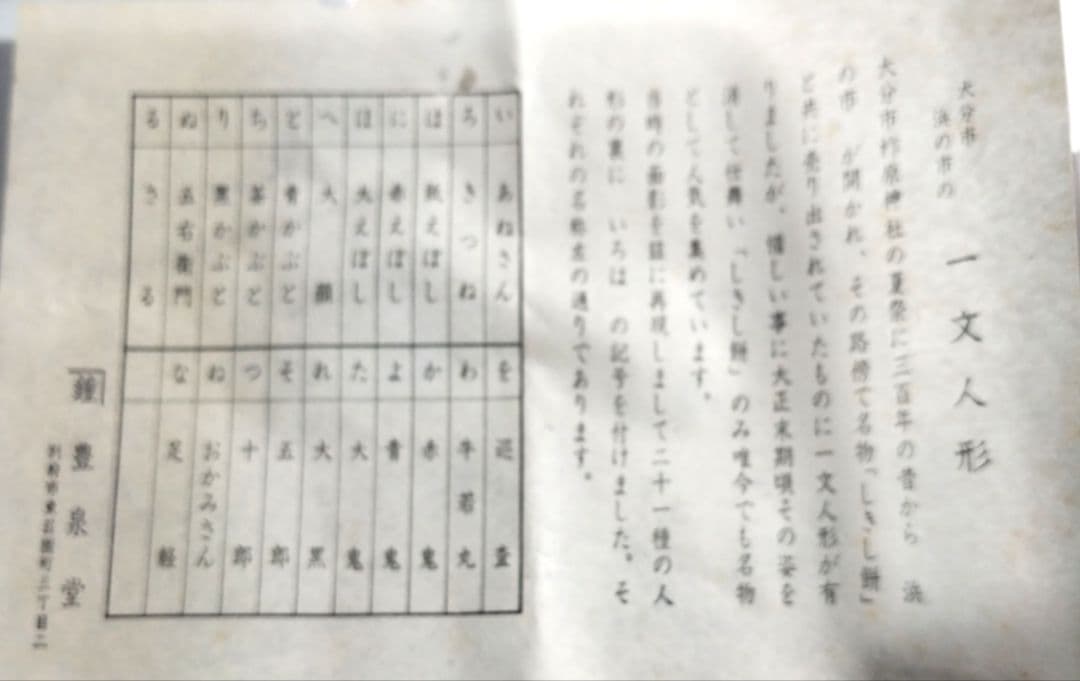 大分市
浜の市の
一文人形
大分市柞原神社の夏祭に三百年の昔から 浜
の市 が開かれ、その路傍で名物「しきし餅」
と共に売り出されていたものに一文人形が有
りましたが、惜しい事に大正末期頃その姿を
消して仕舞い「しきし餅」のみ唯今でも名物
として人気を集めています。
当時の面影を茲に再現しまして二十一種の人
形の裏に いろは の記号を付けました。そ
れぞれの名称左の通りであります。
い あねさん
ろ きつね
は 紙えぼし
に 赤えぼし
ほ 大えぼし
へ 大顔
と 青かぶと
ち 茶かぶと
り 黒かぶと
ぬ 五右衛門
る さる
を
わ 牛若丸
か 赤鬼
よ 青鬼
た 大鬼
れ 大黒
そ 五郎
つ 十郎
ね おかみさん
な 足軽
豊泉堂
別府市東荘園町三丁目二